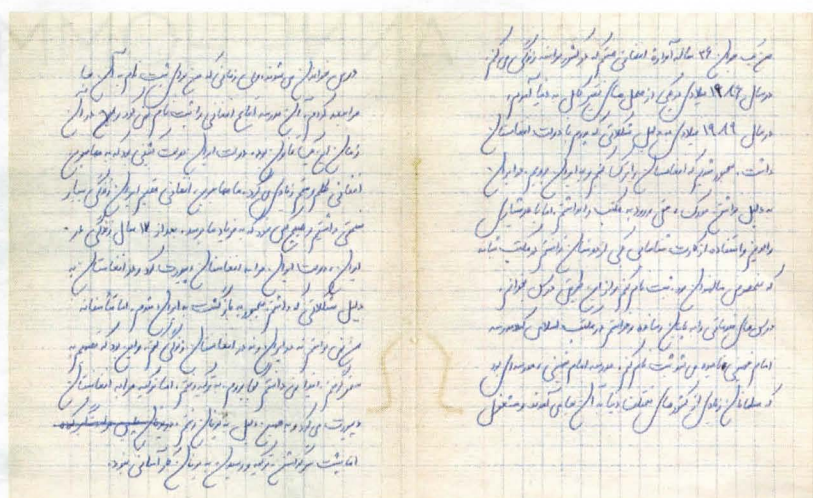 من یک جوان ۲۶ ساله آواره افغانی هستم که در کشور فرانسه زندگی می کنم.
در سال ۱۹۸۶ میلادی در یکی از محل های شهر کابل به دنیا آمدم.
در سال ۱۹۸۹ میلادی به دلیل مشکلاتی که پدرم با دولت افغانستان
داشت، مجبور شدیم که افغانستان را ترک کنیم و به ایران برویم. در ایران
به دلیل نداشتن مدرک، حق ورود به مکتب را نداشتم اما با هر شکل
و با استفاده از کارت شناسایی یکی از دوستان توانستم در مکتب شبانه
که مخصوص سالمندان بود ثبت نام کنم و از این طریق درس بخوانم.
درس های مقدماتی را به پایان رساندم و خواستم در مکتب اسلامی که مدرسه
امام خمینی نامیده می شد ثبت نام کنم. مدرسه امام خمینی، مدرسه ای بود
که مسلمانان زیادی از کشورهای مختلف دنیا به آن جا می آمدند و مشغول
درس خواندن می شدند. ولی زمانی که من برای ثبت نام به آن جا
مراجعه کردم، آن مدرسه اتباع افغانی را ثبت نام نمی کرد و هیچ
زمان دولت ایران دولت که به مهاجرین
افغانی ظلم و ستم زیادی می کرد. ما مهاجرین افغانی مقیم ایران زندگی بسیار
سختی داشتیم و هیچ کس نبود که به فریاد ما برسد. بعد از ۱۷ سال زندگی در
ایران، دولت ایران مرا به افغانستان دیپورت کرد و در افغانستان به
دلیل مشکلاتی که داشتم مجبور به بازگشت به ایران شدم. اما متأسفانه
من نمی توانستم نه در ایران و نه در افغانستان زندگی کنم. و این بود که تصمیم به
سفر گرفتم. نمی دانستم کجا بروم. به ترکیه رفتم. اما ترکیه مرا به افغانستان
دیپورت می کرد و به همین دلیل به یونان رفتم.
اما پشت سر گذاشتن ترکیه و رسیدن به یونان کار آسانی نبود.